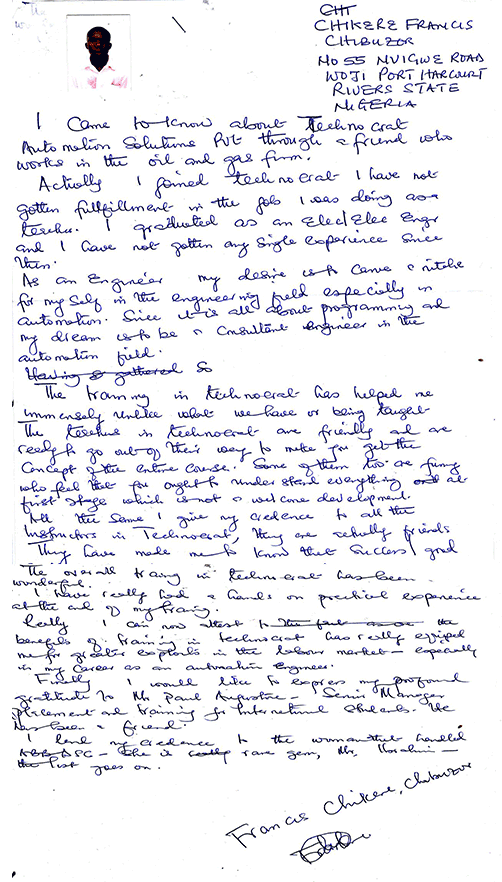 CHI
CHIKERE FRANCIS
CHIBUZOR
NO 55 NVIGWE ROAD
WOJI PORT HARCOURT
RIVERS STATE
NIGERIA
I Came to know about Technocrat
Automation Solutions PVt through a friend who
works in the oil and gas firm.
Actually I joined technocrat I have not
gotten fulfillment in the job I was doing as a
teacher. I graduated as an Elec/Elec Engr
and I have not gotten any single experience since
then.
As an Engineer my desire is to carve a nitche
for my self in the engineering field especially in
automation. Since it is all about programming and
my dream is to be a Consultant engineer in the
automation field.
Having so gathered So
The training in technocrat has helped me
immensely unlike what we have or being taught
The teachers in technocrat are friendly and are
ready to go out of their way to make you get the
concept of the entire course. Some of them too are funny
who feel that you ought to understand everything at
first stage which is not a welcome development.
All the same I give my credence to all the
Instructors in Technocrat, they are actually friends
They have made me to know that success/good
The overall training in technocrat has been
wonderful.
I have really had a hands on practical experience
at the end of my training.
Really I can now attest to the fact the
benefits of training in technocrat has really equiped
me for greater exploits in the labour market - especially
in my career as an automation engineer.
Finally I would like to express my profound
gratitude to Mr Paul Augustine - Senior Manager
placement and training for International students. He
has been a friend.
I lend my credence to the woman that handled
ABB DPC - She is really rare gem, Mr. Ibrahim -
the list goes on.
Francis Chikere, Chibuzor